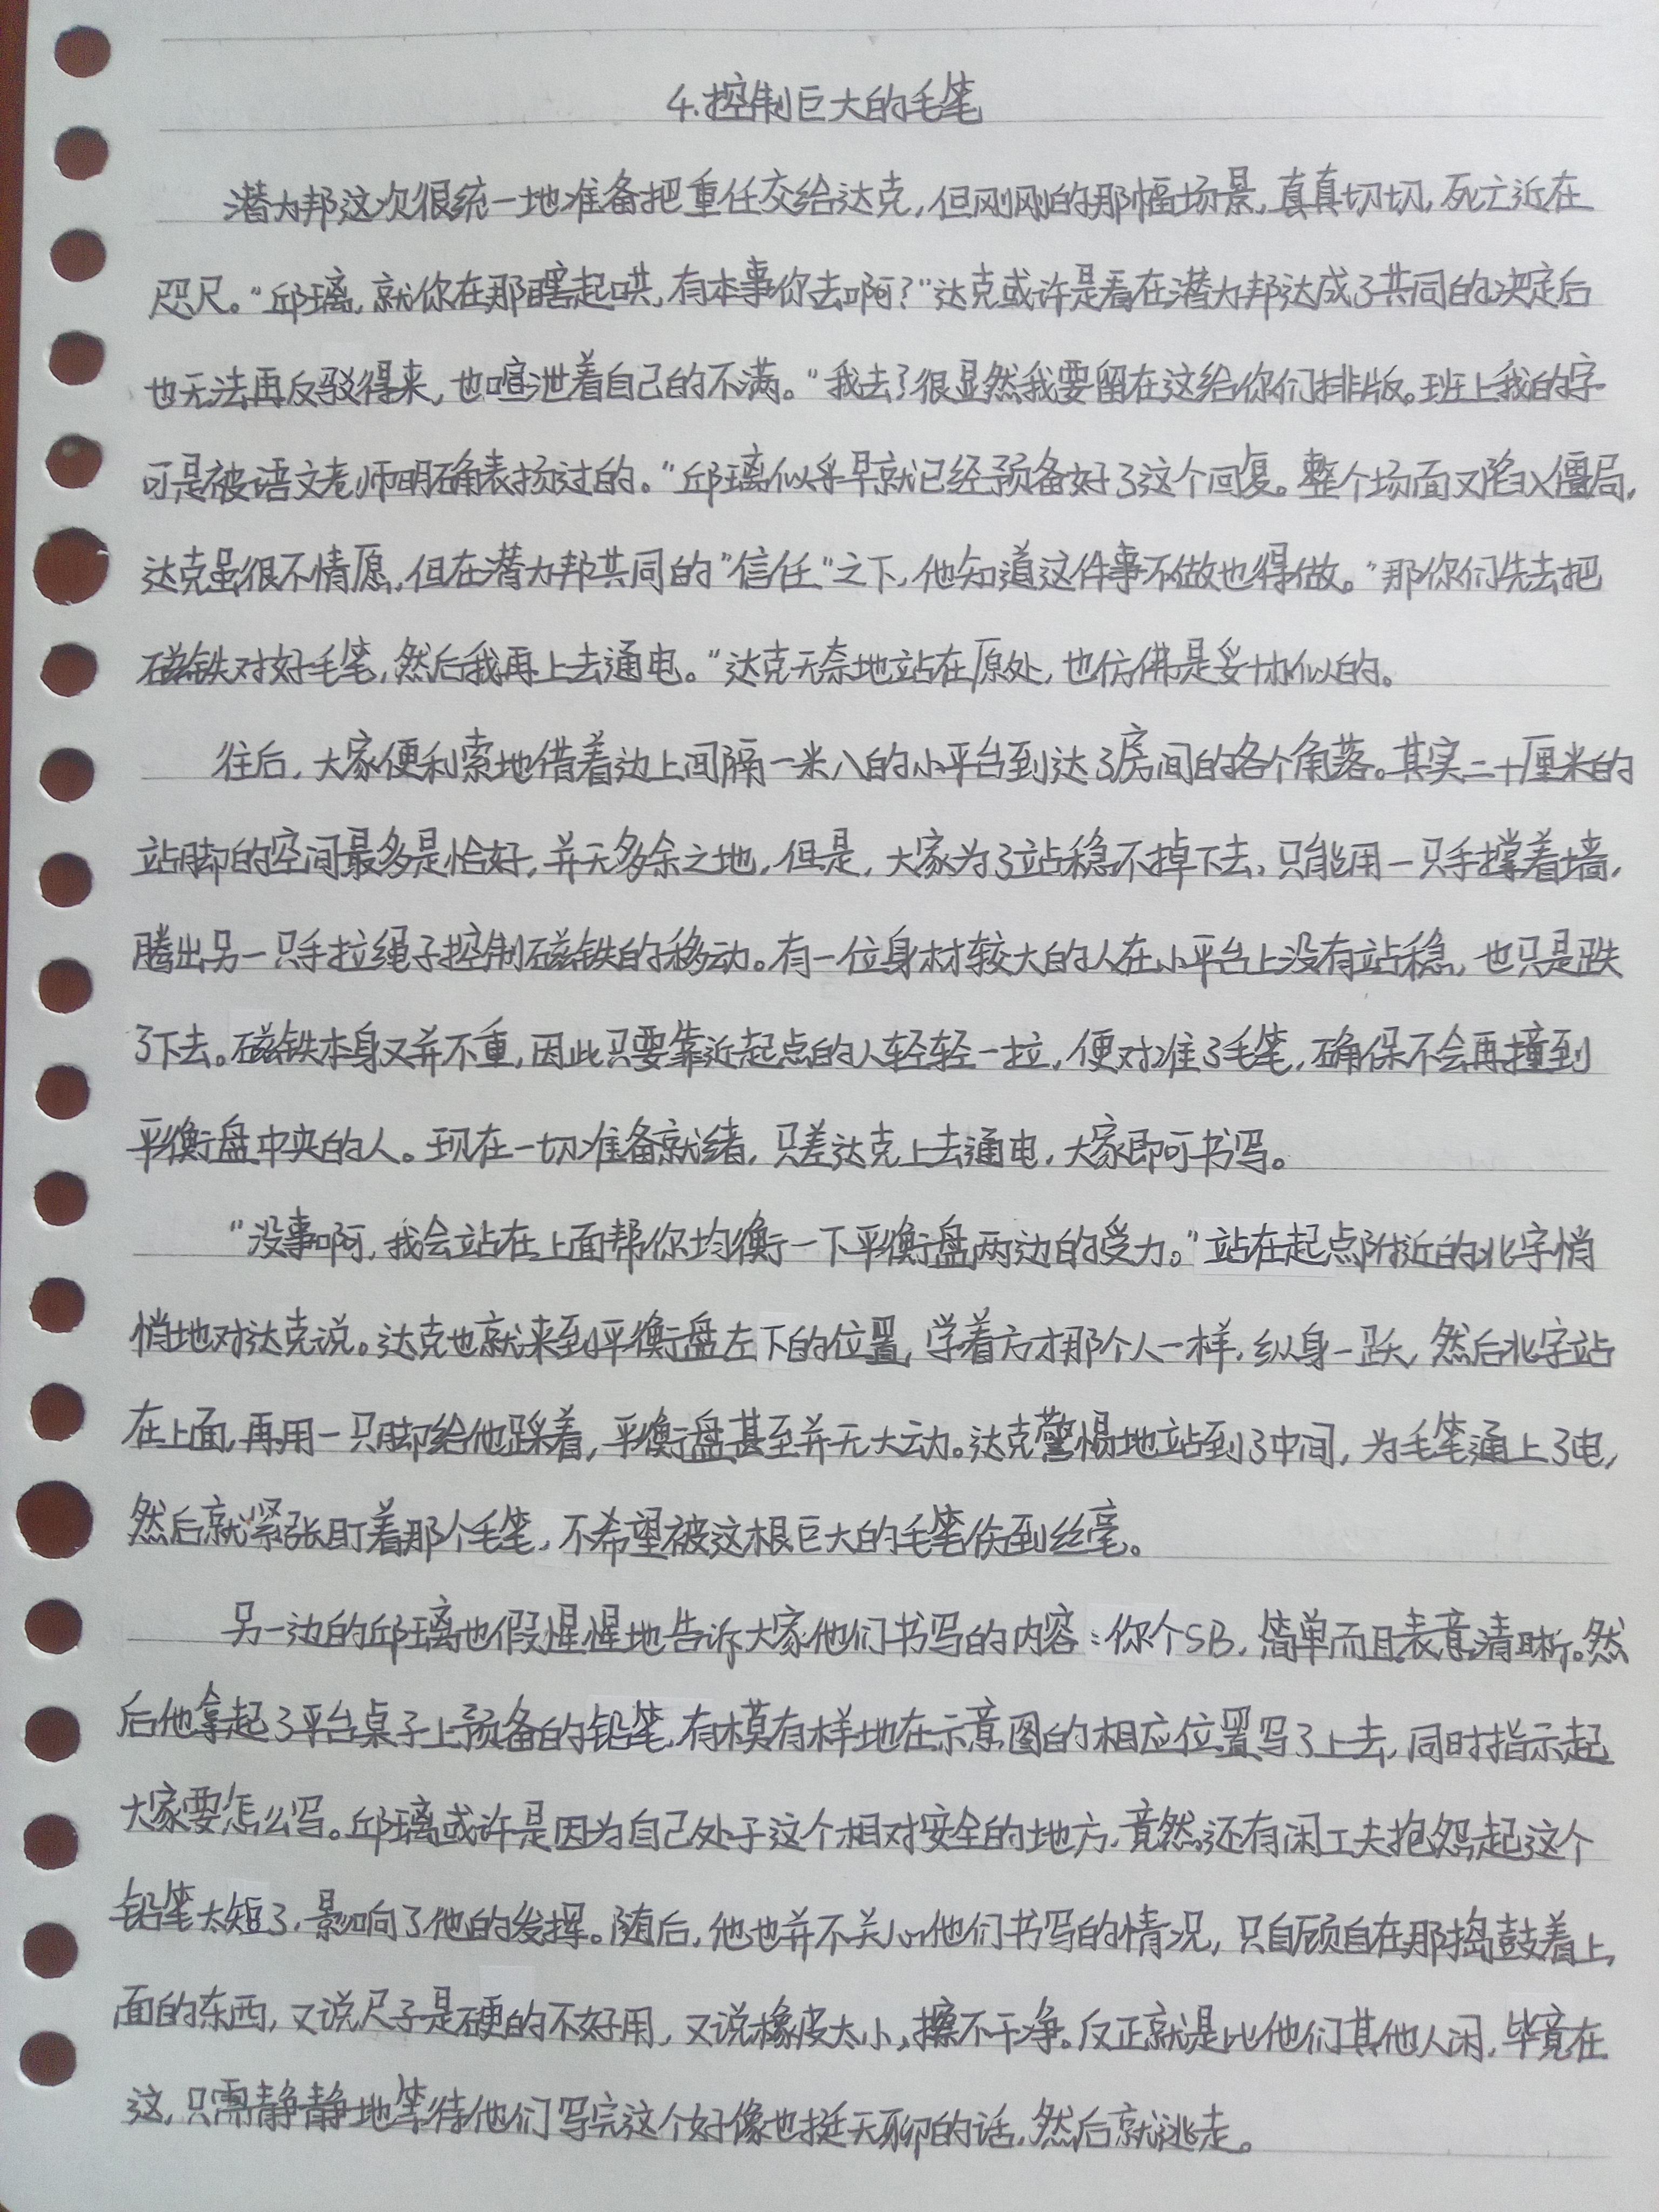 4.控制巨大的毛笔
潜力邦这次很统一地准备把重任交给达克,但刚刚的那幅场景,真真切切,死亡近在
咫尺。“邱璃,就你在那瞎起哄,有本事你去啊?”达克或许是看在潜力邦达成了共同的决定后
也无法再反驳得来,也喧泄着自己的不满。“我去?很显然我要留在这给你们排版。班上我的字
可是被语文老师明确表扬过的。”邱璃似乎早就已经预备好了这个回复。整个场面又陷入僵局,
达克虽很不情愿,但在潜力邦共同的“信任”之下,他知道这件事不做也得做。“那你们先去把
磁铁对好毛笔,然后我再上去通电。”达克无奈地站在原处,也仿佛是妥协似的。
往后,大家便利索地借着边上间隔一米八的小平台到达了房间的各个角落。其实二十厘米的
站脚的空间最多是恰好,并无多余之地,但是,大家为了站稳不掉下去,只能用一只手撑着墙,
腾出另一只手拉绳子控制磁铁的移动。有一位身材较大的人在小平台上没有站稳,也只是跌
了下去。磁铁本身又并不重,因此只要靠近起点的人轻轻一拉,便对准了毛笔,确保不会再撞到
平衡盘中央的人。现在一切准备就绪,只差达克上去通电,大家即可书写。
“没事啊,我会站在上面帮你均衡一下平衡盘两边的受力。”站在起点附近的北字悄
悄地对达克说。达克也就来到平衡盘左下的位置,学着方才那个人一样,纵身一跃,然后北字站
在上面,再用一只脚给他踩着,平衡盘甚至并无大动。达克警惕地站到了中间,为毛笔通上了电,
然后就紧张盯着那个毛笔,不希望被这根巨大的毛笔伤到丝毫。
另一边的邱璃也假惺惺地告诉大家他们书写的内容:你个SB,简单而且表意清晰。然
后他拿起了平台桌子上预备的铅笔,有模有样地在示意图的相应位置写了上去,同时指示起
大家要怎么写。邱璃或许是因为自己处于这个相对安全的地方,竟然还有闲工夫抱怨起这个
铅笔太短了,影响了他的发挥。随后,他也并不关心他们书写的情况,只自顾自在那捣鼓着上
面的东西,又说尺子是硬的不好用,又说橡皮太小,擦不干净。反正就是比他们其他人闲,毕竟在
这,只需静静地等待他们写完这个好像也挺无聊的话,然后就逃走。